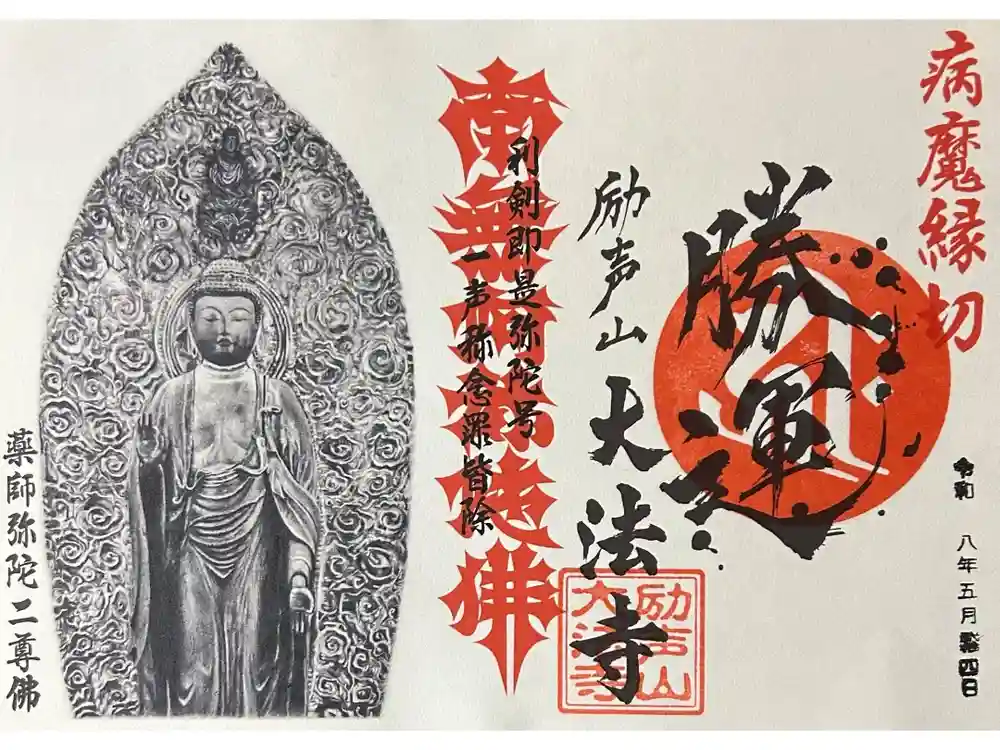 病魔縁切
勝運
令和 八年五月 四日
励声山
大法寺
励声山
大法寺
利剣即是弥陀号
一声称念罪皆除
南無阿弥陀佛
薬師弥陀二尊佛